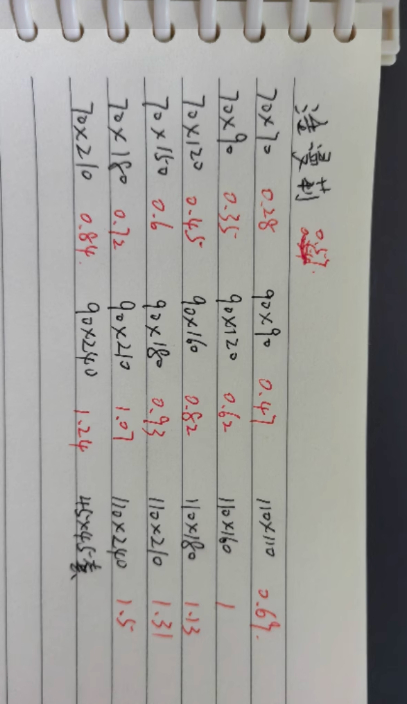 70×70 0.28 90×90 0.47 110×110 0.69.
70×90 0.35 90×120 0.62 110×160 1
70×120 0.45 90×160 0.82 110×180 1.13
70×150 0.6 90×180 0.93 110×210 1.31
70×180 0.72 90×210 1.07 110×240 1.5
70×210 0.84 90×240 1.24 45×45套